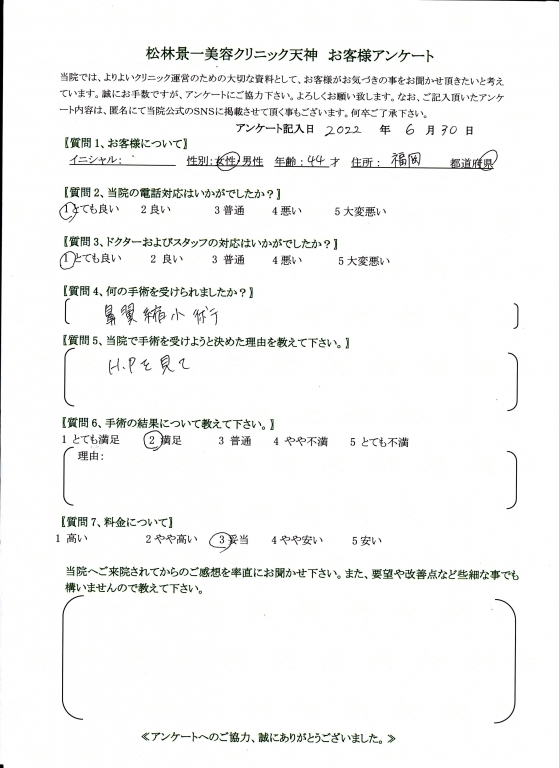 松林景一美容クリニック天神 お客様アンケート
当院では、よりよいクリニック運営のための大切な資料として、お客様がお気づきの事をお聞かせ頂きたいと考え
ています。誠にお手数ですが、アンケートにご協力下さい。よろしくお願い致します。なお、ご記入頂いたアンケ
ート内容は、匿名にて当院公式のSNSに掲載させて頂く事もございます。何卒ご了承下さい。
アンケート記入日 2022 年 6 月 30 日
【質問1、お客様について】
イニシャル: 性別:女性/男性 年齢:44才 住所: 福岡 都道府県
【質問2、当院の電話対応はいかがでしたか?】
1とても良い 2良い 3普通 4悪い 5大変悪い
【質問3、ドクターおよびスタッフの対応はいかがでしたか?】
1とても良い 2 良い 3 普通 4悪い 5大変悪い
【質問4、何の手術を受けられましたか?】
鼻翼縮小術
【質問5、当院で手術を受けようと決めた理由を教えて下さい。】
H.Pを見て
【質問6、手術の結果について教えて下さい。】
1 とても満足 2 満足 3 普通 4 やや不満 5 とても不満
理由:
【質問7、料金について】
1 高い 2やや高い 3妥当 4やや安い 5安い
当院へご来院されてからのご感想を率直にお聞かせ下さい。また、要望や改善点など些細な事でも
構いませんので教えて下さい。
≪アンケートへのご協力、誠にありがとうございました。≫